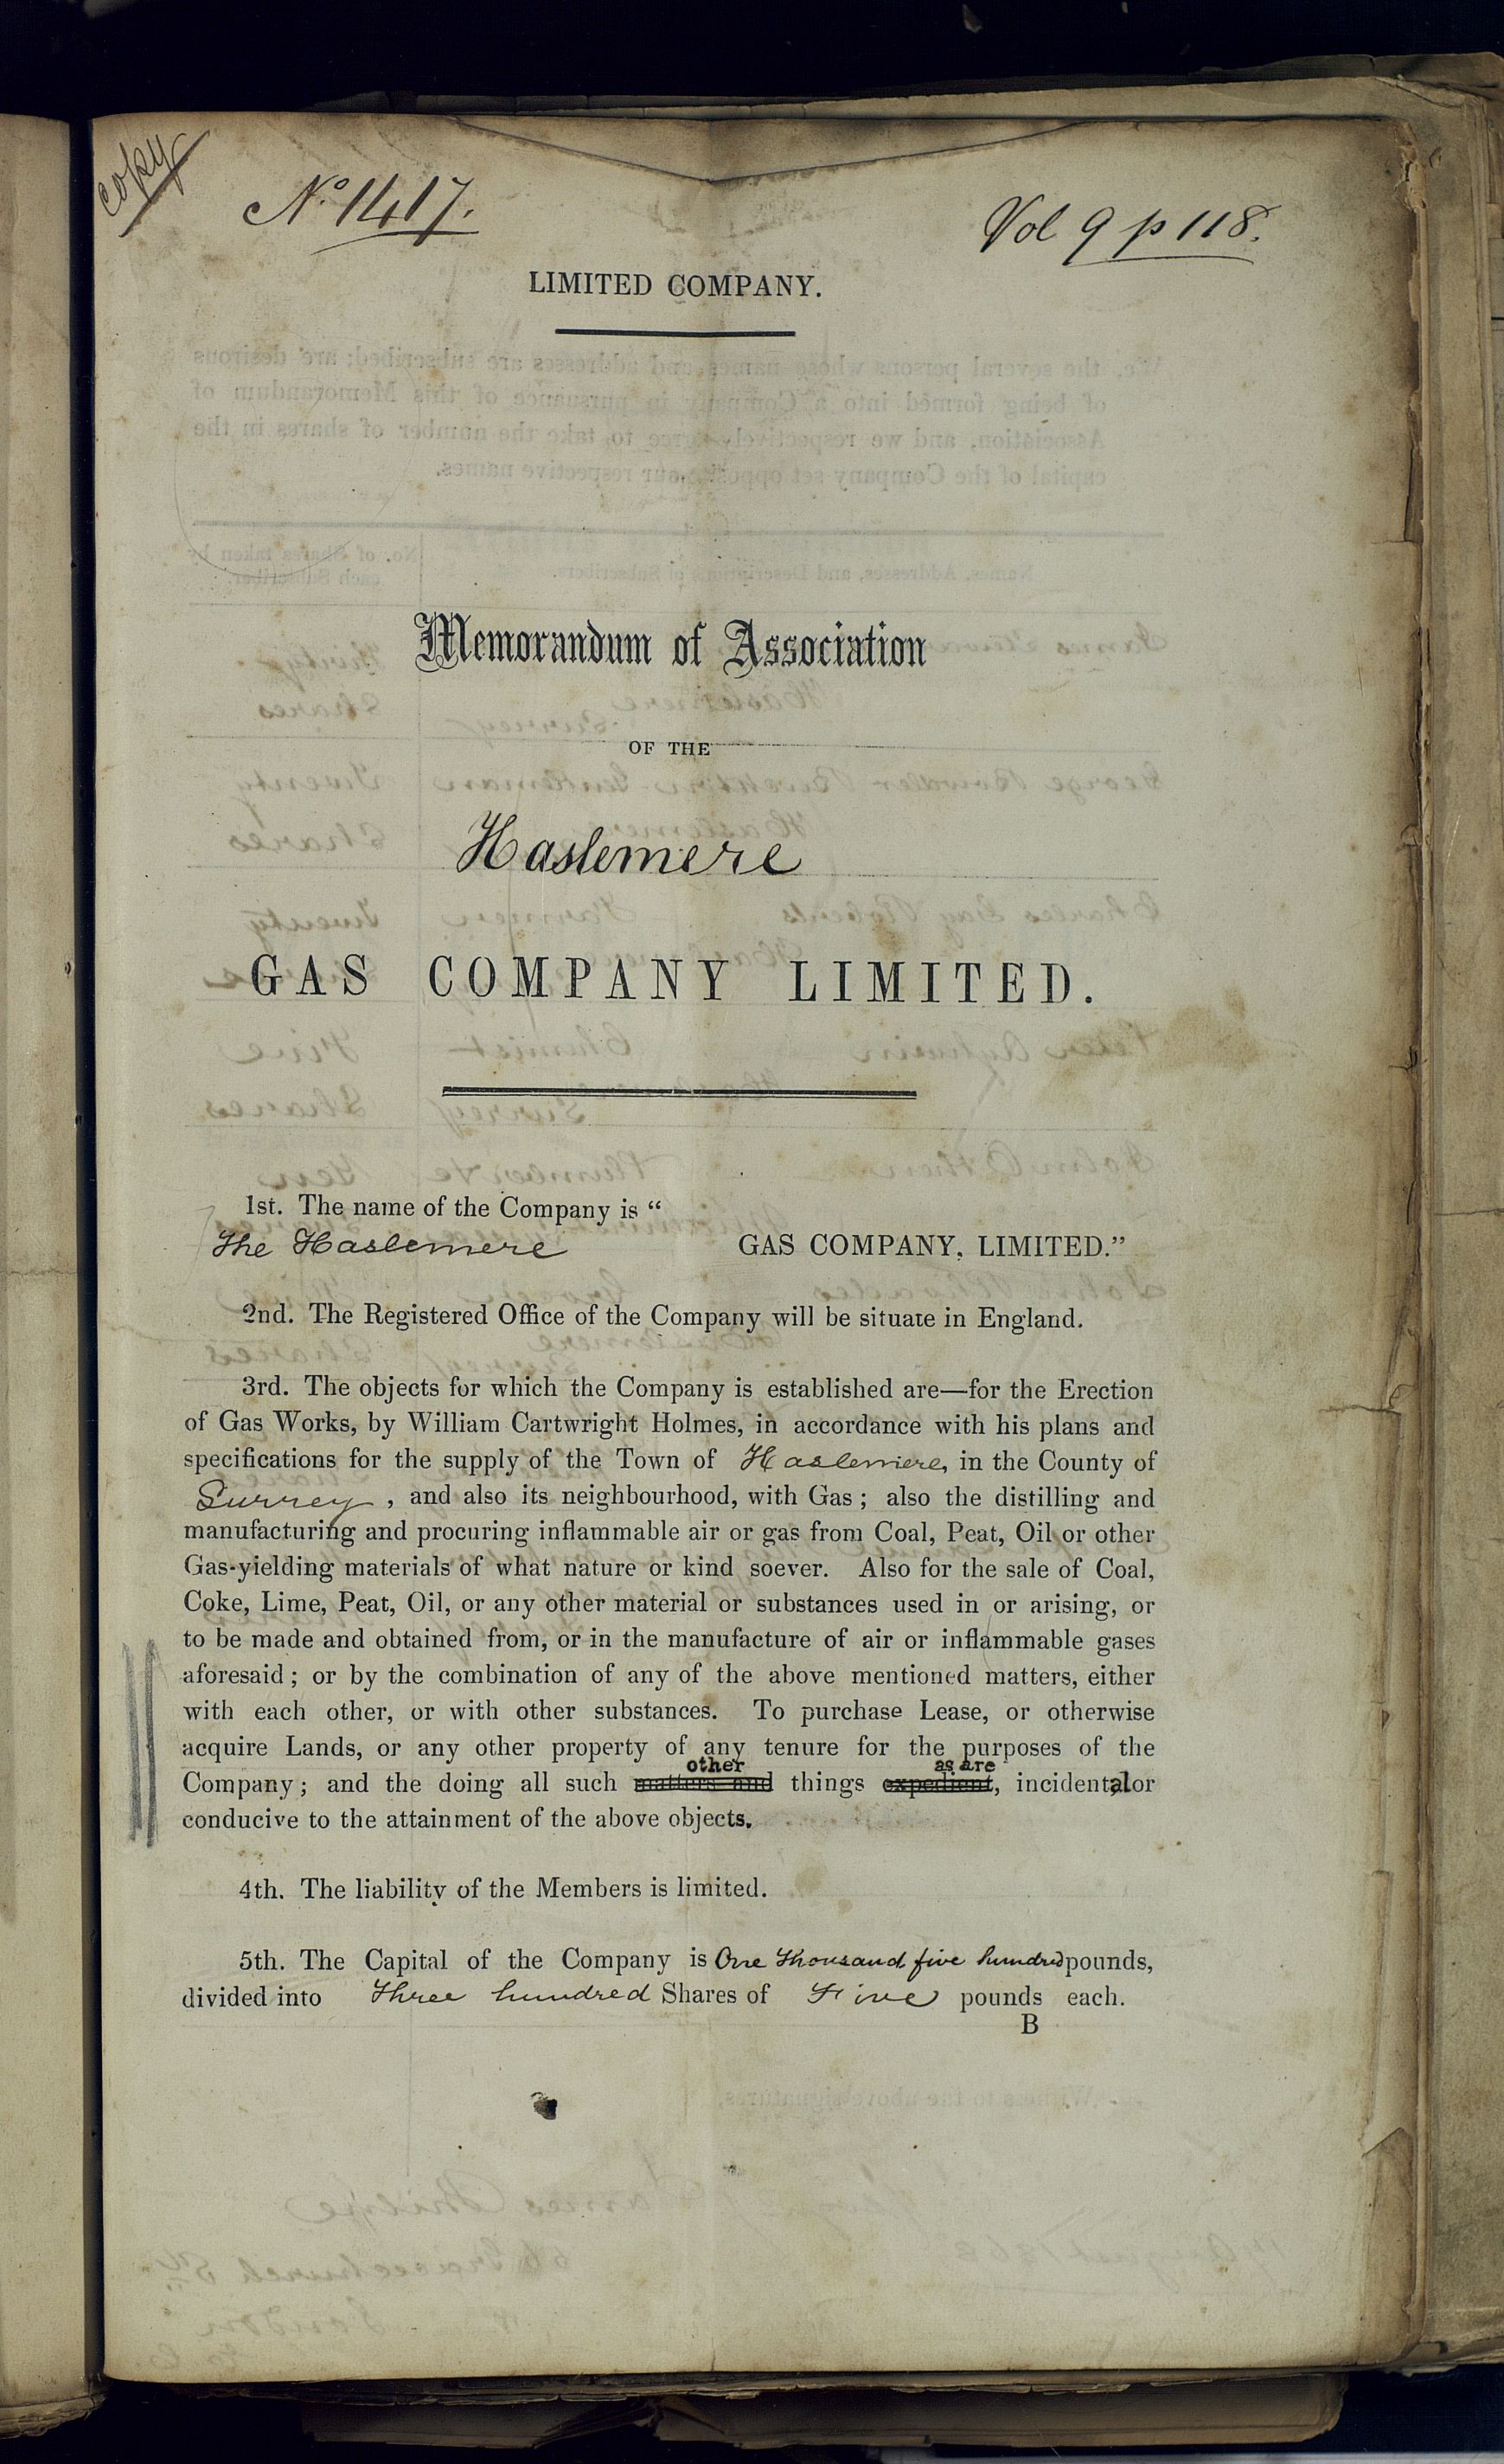 copy
No. 1417.
Vol 9 p 118.
LIMITED COMPANY.
Memorandum of Association
OF THE
Haslemere
GAS COMPANY LIMITED.
1st. The name of the Company is “
The Haslemere GAS COMPANY, LIMITED.”
2nd. The Registered Office of the Company will be situate in England.
3rd. The objects for which the Company is established are—for the Erection
of Gas Works, by William Cartwright Holmes, in accordance with his plans and
specifications for the supply of the Town of Haslemere, in the County of
Surrey, and also its neighbourhood, with Gas; also the distilling and
manufacturing and procuring inflammable air or gas from Coal, Peat, Oil or other
Gas-yielding materials of what nature or kind soever. Also for the sale of Coal,
Coke, Lime, Peat, Oil, or any other material or substances used in or arising, or
to be made and obtained from, or in the manufacture of air or inflammable gases
aforesaid; or by the combination of any of the above mentioned matters, either
with each other, or with other substances. To purchase Lease, or otherwise
acquire Lands, or any other property of any tenure for the purposes of the
other as are
Company; and the doing all such matters and things expedient, incidental or
conducive to the attainment of the above objects.
4th. The liability of the Members is limited.
5th. The Capital of the Company is One Thousand five hundred pounds,
divided into Three hundred Shares of Five pounds each.
B